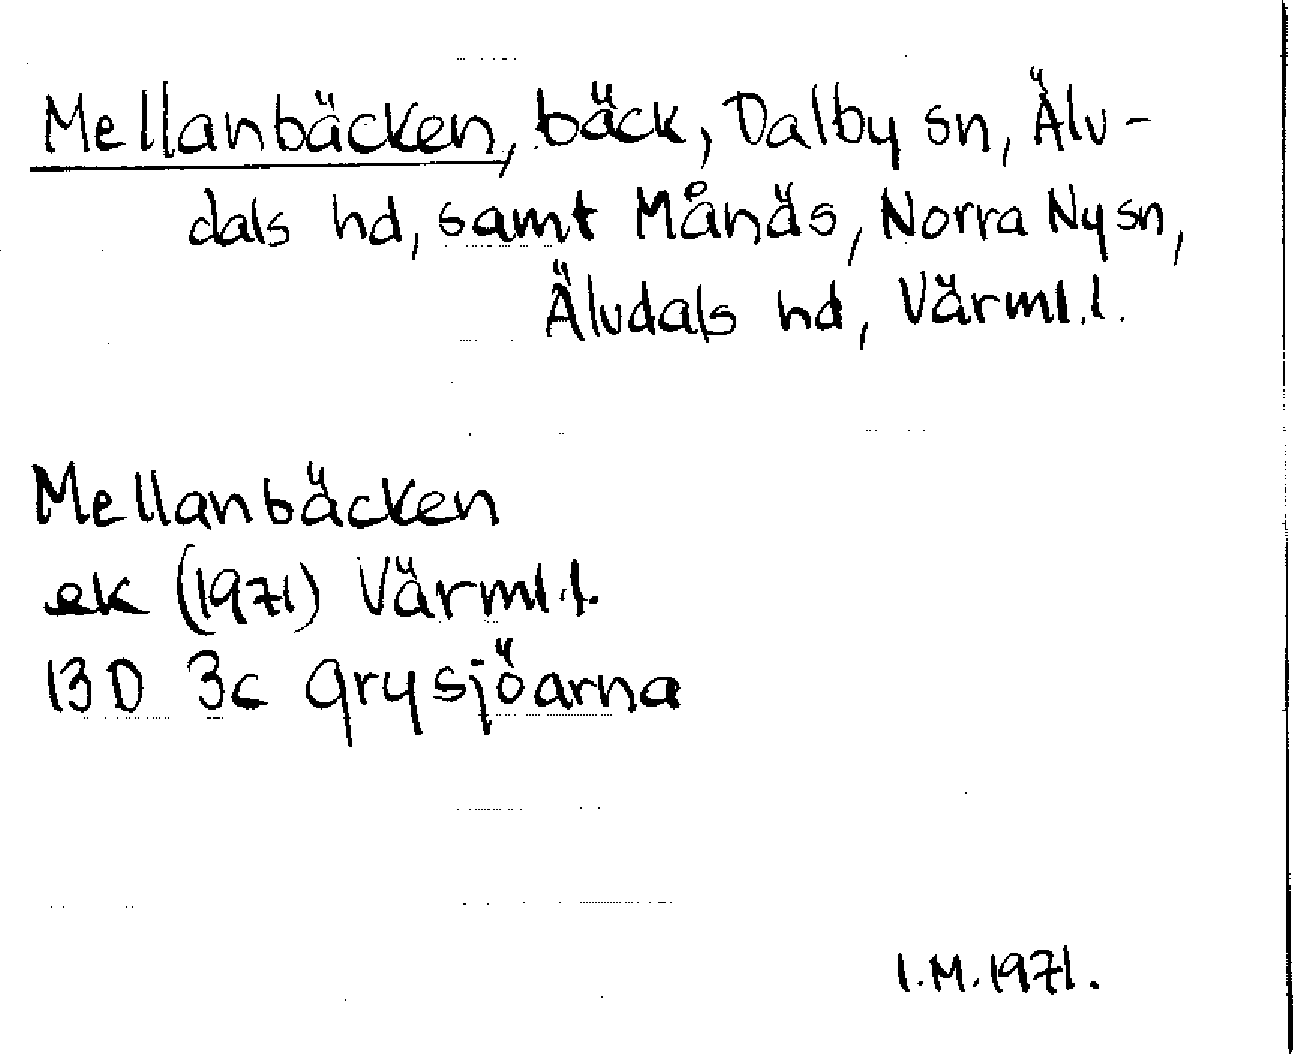 Mellanbäcken, bäck, Dalby sn, Älv-
dals hd, samt Månäs, Norra Ny sn,
Älvdals hd, Värml.l.
Mellanbäcken
ek (1971) Värml.l.
13D 3c Grysjöarna
I.M.1971.